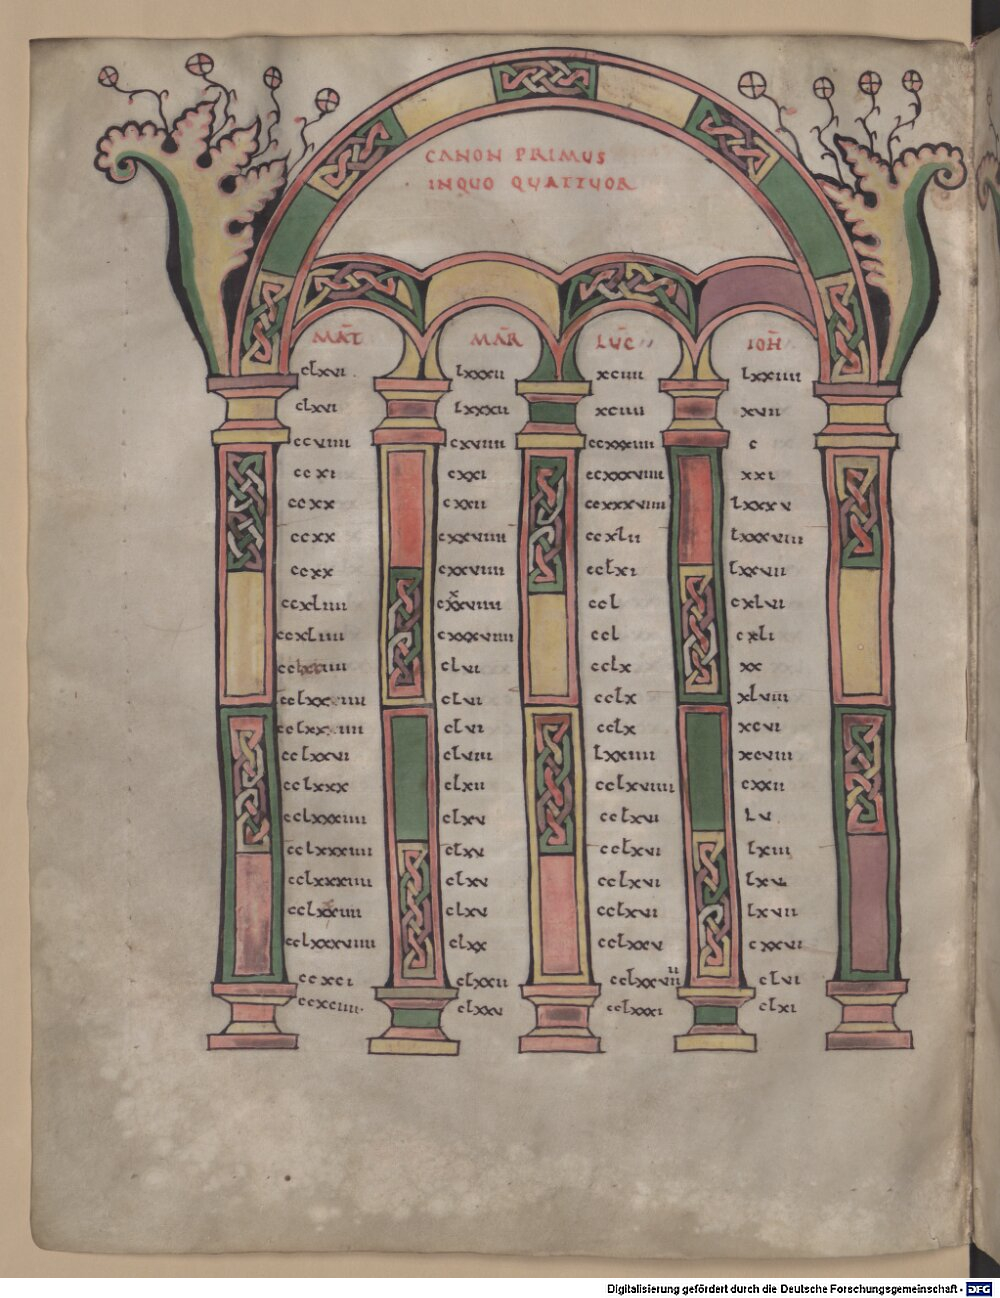 CANON PRIMUS
INQUO QUATTUOR
MAT MAR LUC IOH
clxvi lxxxii xciiii lxxiiii
clxvi lxxxii xciiii xvii
ccviiii cxviiii ccxxxiiii c
ccxi cxxi ccxxxviiii xxi
ccxx cxxii ccxxxviiii lxxxv
ccxx cxxviiii ccxlii lxxxviii
ccxx cxxviiii cclxi lxxvii
ccxliiii cxxxviiii ccl cxlvi
ccxliiii cxxxviiii ccl cxli
clvi cclx xx
cclxxiiii clvi cclx xlviii
cclxxiiii clvi cclx xcvi
cclxxvi clviii lxxiiii xcviii
cclxxx clxii cclxviiii cxxii
cclxxxiiii clxv cclxvi lv
cclxxxiiii clxv cclxvi lxiii
cclxxxiiii clxv cclxvi lxv
cclxxiiii clxv cclxvi lxvii
cclxxxviiii clxx cclxxv cxxvi
ccxci clxxii cclxxviiii clvi
ccxciiii clxxv cclxxxi clxi
Digitalisierung gefördert durch die Deutsche Forschungsgemeinschaft - DFG